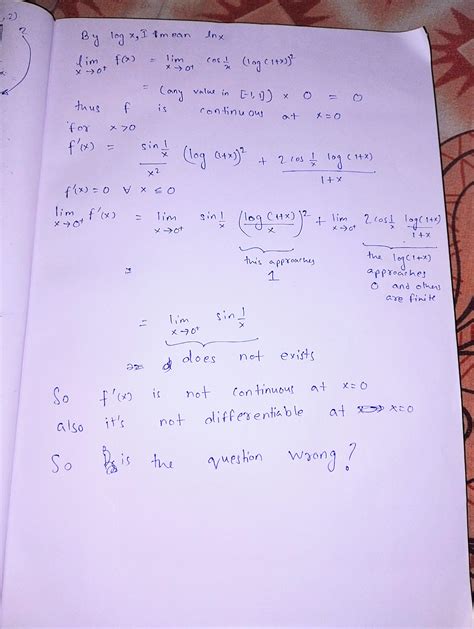 ,2)
?
By log x, I mean lnx
lim x→0⁺ f(x) = lim x→0⁺ cos 1/x (log(1+x))²
= (any value in [-1,1]) × 0 = 0
thus f is continuous at x=0
for x>0
f'(x) = sin 1/x / x² (log(1+x))² + 2 cos 1/x log(1+x) / 1+x
f'(x) = 0 ∀ x ≤ 0
lim x→0⁺ f'(x) = lim x→0⁺ sin 1/x (log(1+x) / x)² + lim x→0⁺ 2 cos 1/x log(1+x) / 1+x
this approaches 1
the log(1+x)
approaches
0 and others
are finite
=
= lim x→0⁺ sin 1/x
= does not exists
So f'(x) is not continuous at x=0
also it's not differentiable at x=0
So is the question wrong?